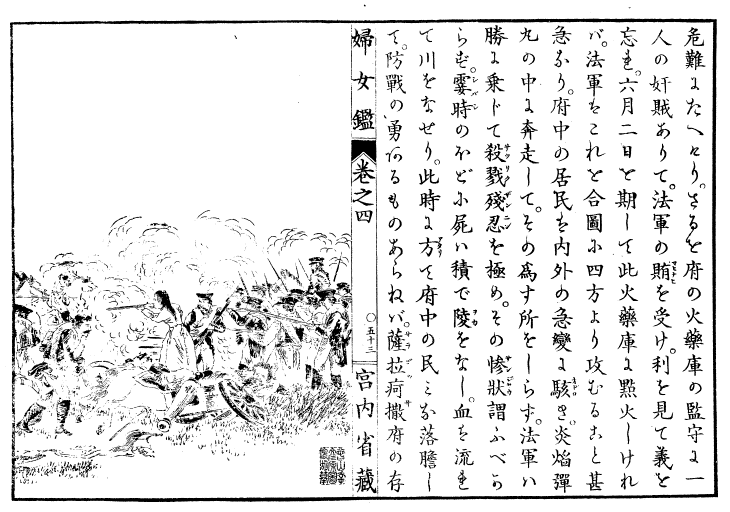 危難にたへたり。さるを府の火藥庫の監守に一
人の奸賊ありて。法軍の賄を受け。利を見て義を
忘れ。六月二日を期して此火藥庫に點火しけれ
バ。法軍をこれを合圖に四方より攻むること甚
急なり。府中の居民を内外の急變に駭き。炎焰彈
丸の中に奔走して。その爲す所をしらず。法軍ハ
勝に乗じて殺戮殘忍を極め。その慘狀謂ふべか
らず。霎時のほどに屍ハ積で陵をなし。血を流れ
て川をなせり。此時に方て府中の民みな落膽し
て。防戰の勇あるものあらねバ。薩拉疴撒府の存
婦女鑑
卷之四
○五十三
宮内省藏